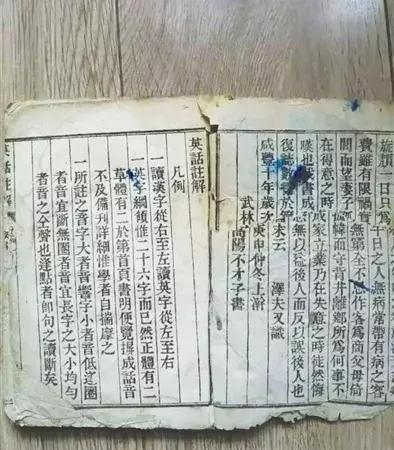 旅類一日只爲千日之人無病常帶有病之客
費雖有限禍實無作客爲商父母倚
閭而望妻子倚幃而守背井離鄉所爲何事不
在得意之時成家立業乃在失意之時徒然慨
嘆也茲書成無以益後人而反以誤後人也
復誌數語於求云 澤夫又識
咸豐十年歲次庚申仲冬上澣
武林高陽不才子書
英話註解
凡例
一讀漢字從右至左讀英字從左至右
一英字綱領惟二十六字而已然正體有二
草體有二於第首頁書明便覽攝成話音
不及備刊詳細惟學者自揣摩之
一所註之音字大者音響字小者音低逐圈
者音宜斷無圈者音宜長字之大小均勻
者音之仝聲也逢點者卽句之讀斷矣
英話註解